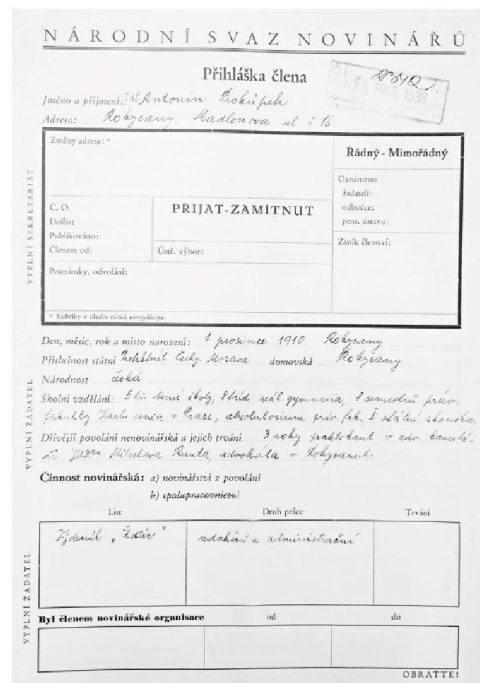 NÁRODNÍ SVAZ NOVINÁŘŮ
Přihláška člena
Jméno a příjmení: Antonín Prokůpek
Adresa: Rokycany Madlonova ul č 16
Změny adresy: *
Řádný - Mimořádný
Oznámeno
žadateli:
odbočce:
pens. ústavu:
C. O.
Došlo:
Publikováno:
Členem od:
PRIJAT-ZAMÍTNUT
Ústř. výbor:
Zánik členství:
Poznámky, odvolání:
* Rubriky v silném rámci nevyplňujte.
VYPLNÍ SEKRETARIÁT
Den, měsíc, rok a místo narození: 1 prosince 1910 Rokycany
Příslušnost státní Protektorát Čechy Morava domovská Rokycany
Národnost česká
Školní vzdělání: 5 tř. obecné školy, 8 tříd reál gymnasia, 8 semestrů práv.
fakulty Karlo univ. v Praze, absolutorium práv. fak. I státní zkouška.
Dřívější povolání nenovinářská a jejich trvání 3 roky praktikant v adv. kancelá-
ři JUDra Miloslava advokáta v Rokycanech.
VYPLNÍ ŽADATEL
Činnost novinářská: a) novinářství z povolání
b) spolupracovnictví
List
Druh práce
Trvání
Týdeník „Žďár"
redakční a administrační
Byl členem novinářské organisace
od
do
VYPLNÍ ŽADATEL
OBRAŤTE!